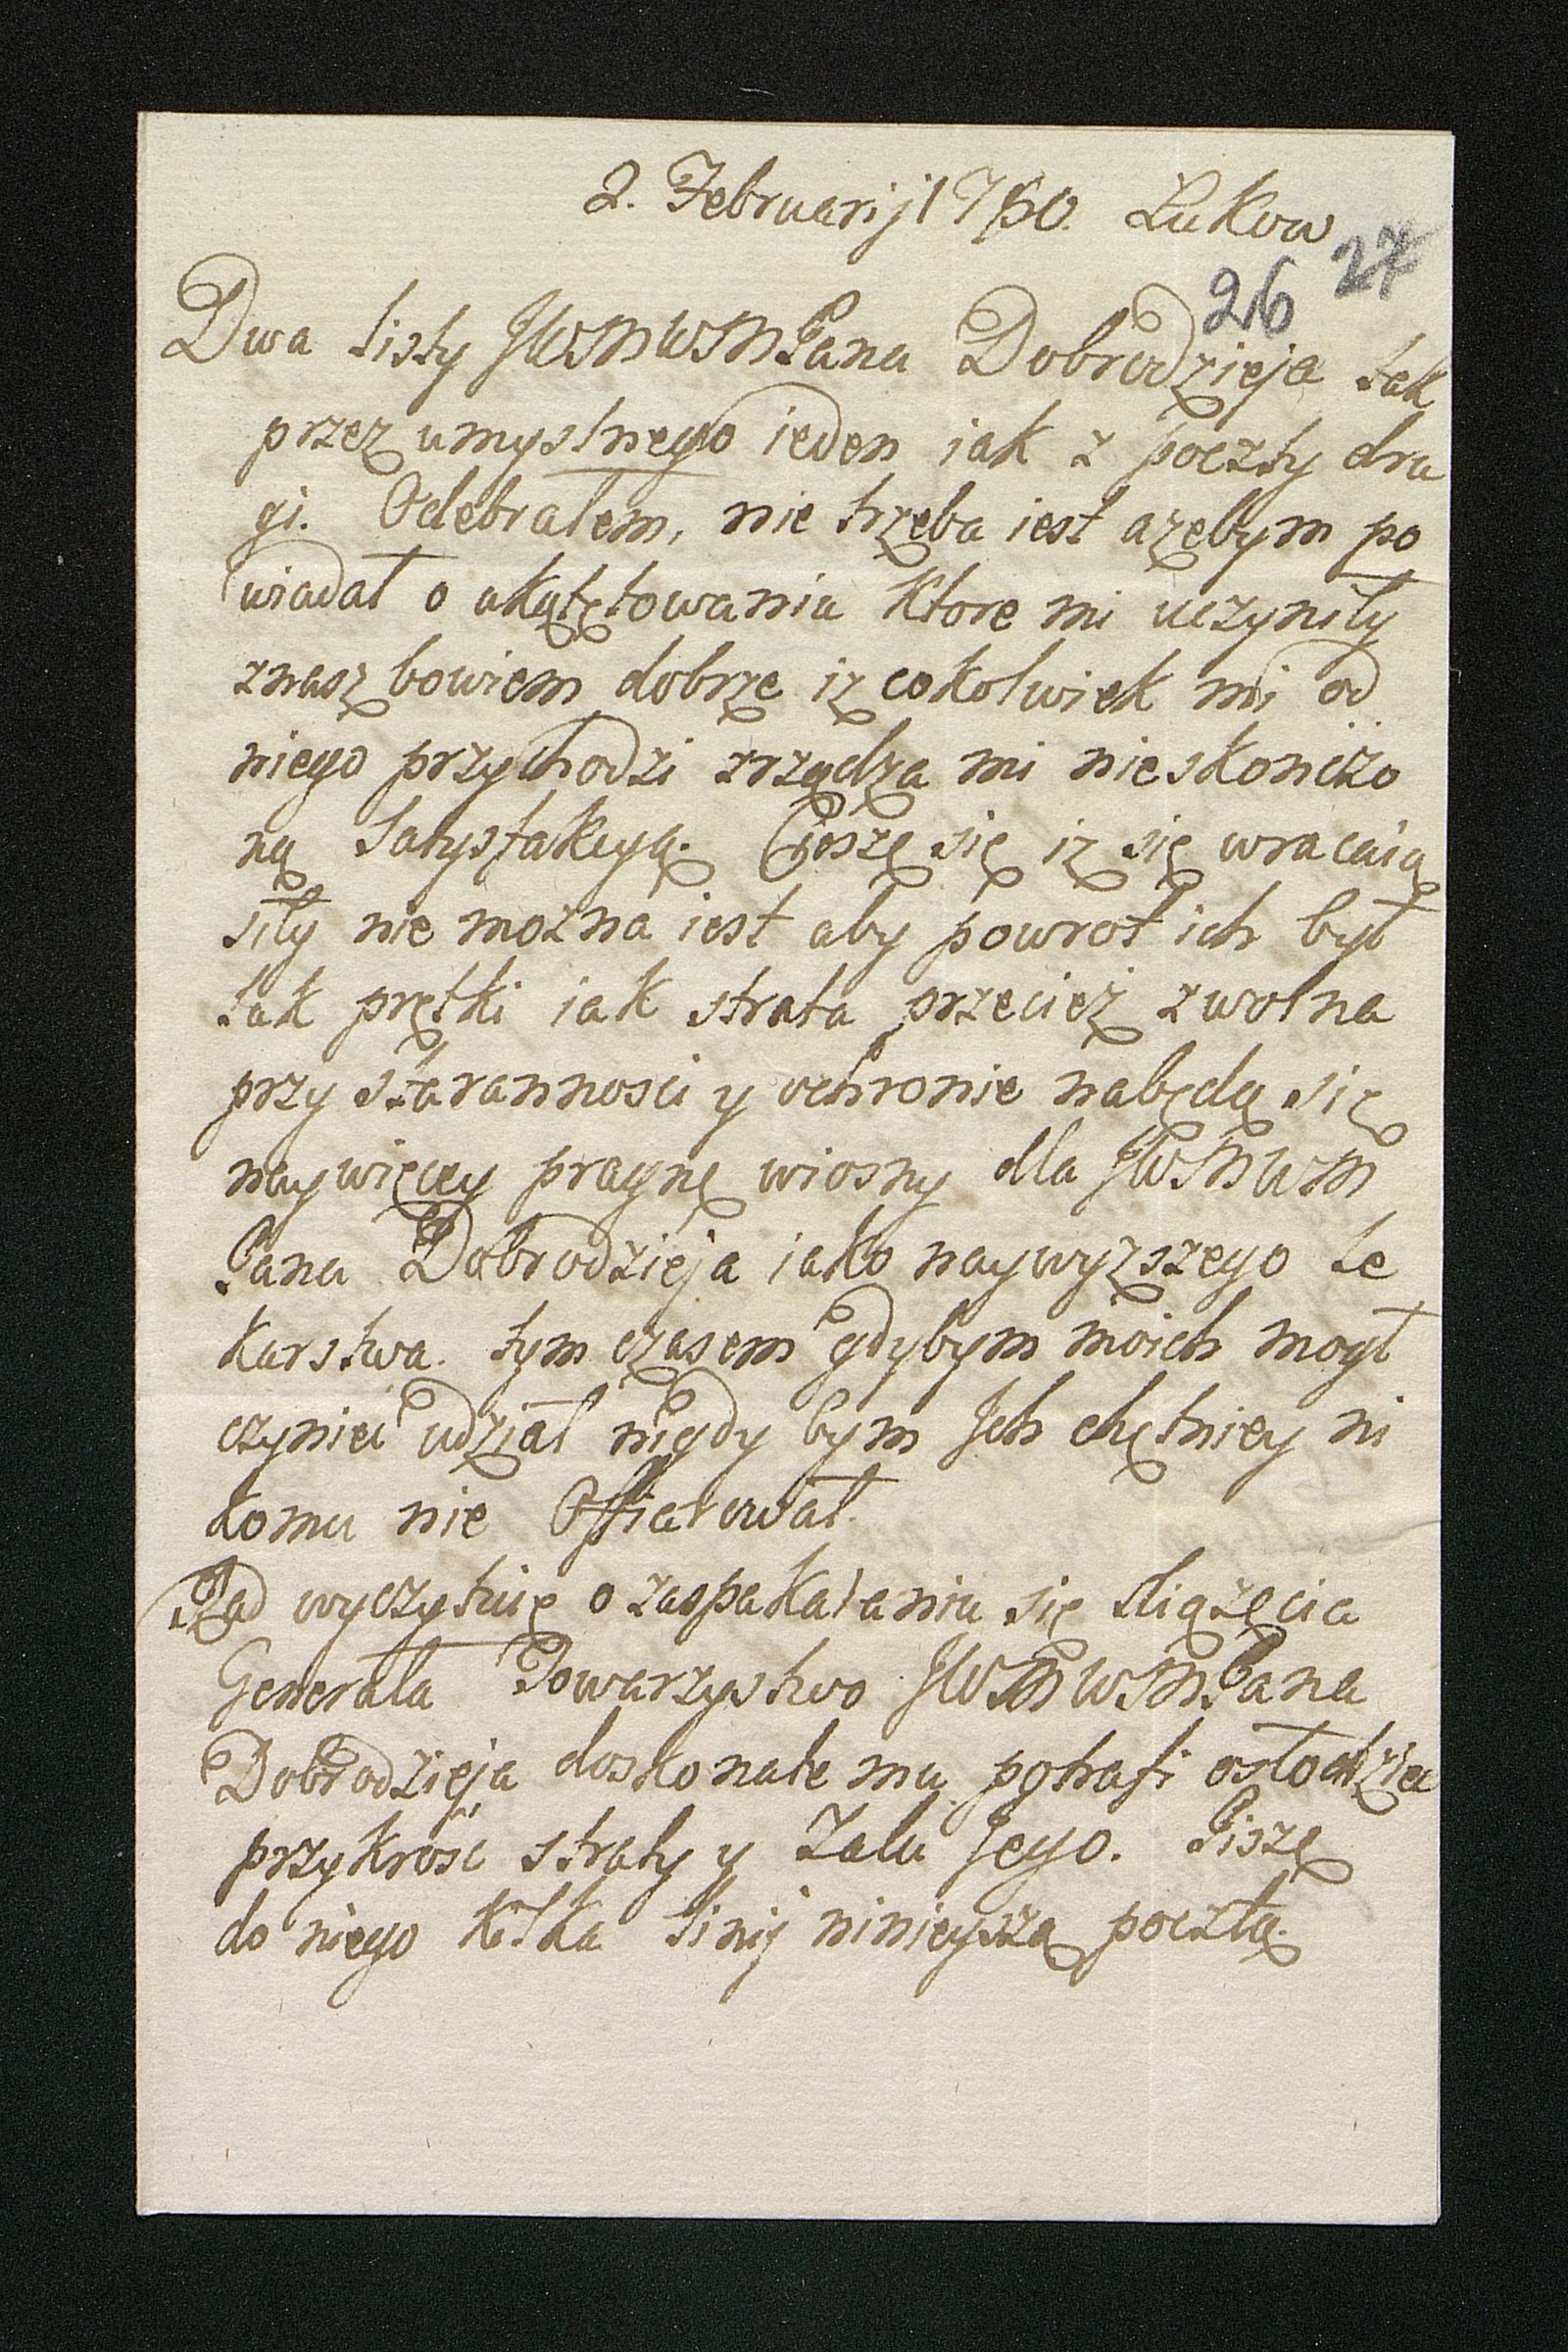 2. Februarij 1760. Łukow
26 27
Dwa listy JWMWMPana Dobrodzieja tak
przez umyslnego ieden iak z poczty dru
gi. Odebrałem, nie trzeba iest azebym po
wiadał o ukątętowaniu Ktore mi uczyniły
znasz bowiem dobrze iz cokolwiek mi od
niego przychodzi zrządza mi nieskończo
ną Satysfakcyą. Cieszę się iz się wracaią
siły nie mozna iest aby powrot ich był
tak prętki iak strata przeciez zwolna
przy staranności y ochronie nabędą się
naywięcey pragnę wiosny dla JWMWM
Pana Dobrodzieja iako naywyzszego le
karstwa. tym czasem gdybym moich mogł
czynić udział nigdy bym Jch chętniey ni
komu nie Offiarował.
Rad wyczytuię o zaspakaianiu się Xiązęcia
Generała Towarzystwo JWMWMPana
Dobrodzieja doskonale mu potrafi osłodzić
przykrość straty y Zalu Jego. Piszę
do niego kilka linij ninieyszą pocztą.